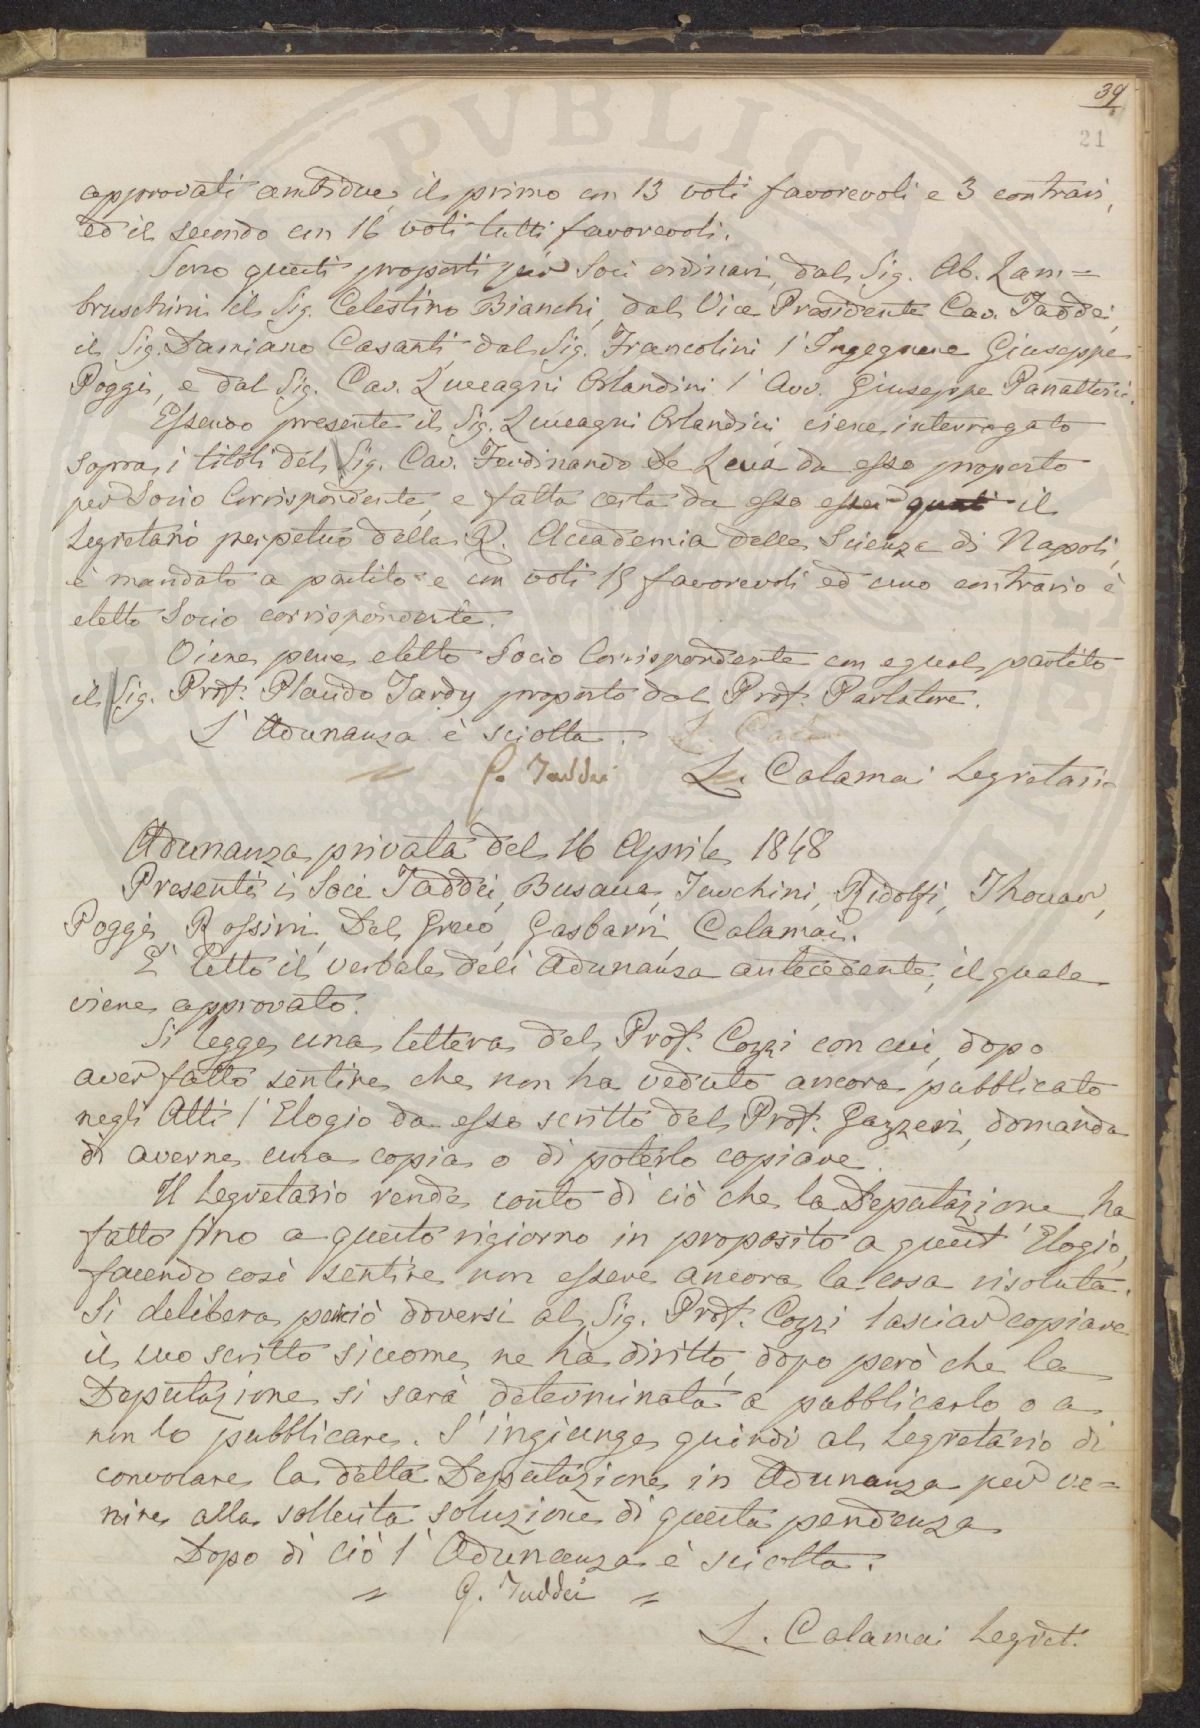 39
21
approvati ambidue, il primo con 13 voti favorevoli e 3 contrari,
ed il secondo con 16 voti tutti favorevoli.
Sono quindi proposti per Soci ordinari, dal Sig. Ab. Lam=
bruschini il Sig. Celestino Bianchi, dal Vice Presidente Cav. Taddei,
il Sig. Damiano Casanti, dal Sig. Francolini l'Ingegnere Giuseppe
Poggi, e dal Sig. Cav. Zuccagni Orlandini l'Avv. Giuseppe Panattoni.
Essendo presente il Sig. Zuccagni Orlandini viene interrogato
sopra i titoli del Sig. Cav. Ferdinando De Luca da esso proposto
per Socio Corrispondente, e fatta certa da esso esser il
Segretario perpetuo della R. Accademia delle Scienze di Napoli,
è mandato a partito e con voti 15 favorevoli ed uno contrario è
eletto Socio corrispondente.
Viene pure eletto Socio Corrispondente con egual partito
il Sig. Prof. Plaudo Tardy proposto dal Prof. Parlatore.
L'Adunanza è sciolta.
G. Taddei L. Calamai Segretario
Adunanza privata del 16 Aprile 1848
Presenti i Soci Taddei, Busacca, Ridolfi, Thouar,
Poggi, Rossini, Del Greco, Gasbarri, Calamai.
E' letto il verbale dell'Adunanza antecedente, il quale
viene approvato.
Si legge una lettera del Prof. Cozzi con cui, dopo
aver fatto sentire che non ha veduto ancora pubblicato
negli Atti l'Elogio da esso scritto del Prof. Gazzeri, domanda
di averne una copia o di poterlo copiare.
Il Segretario rende conto di ciò che la Deputazione ha
fatto fino a questo rigiorno in proposito a quest'Elogio,
facendo così sentire non essere ancora la cosa risoluta.
Si delibera perciò doversi al Sig. Prof. Cozzi lasciar copiare
il suo scritto siccome ne ha diritto, dopo però che la
Deputazione si sarà determinata a pubblicarlo o a
non lo pubblicare. S'ingiunge quindi al Segretario di
convocare la detta Deputazione in Adunanza per ve=
nire alla sollecita soluzione di questa pendenza
Dopo di ciò l'Adunanza è sciolta.
G. Taddei
L. Calamai Segret.